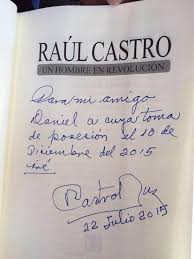 RAÚL CASTRO
UN HOMBRE EN REVOLUCIÓN
Para mi amigo
Daniel a cuya toma
de posesión el 10 de
Diciembre del 2015
iré
Castro Ruz
22 Julio 2015